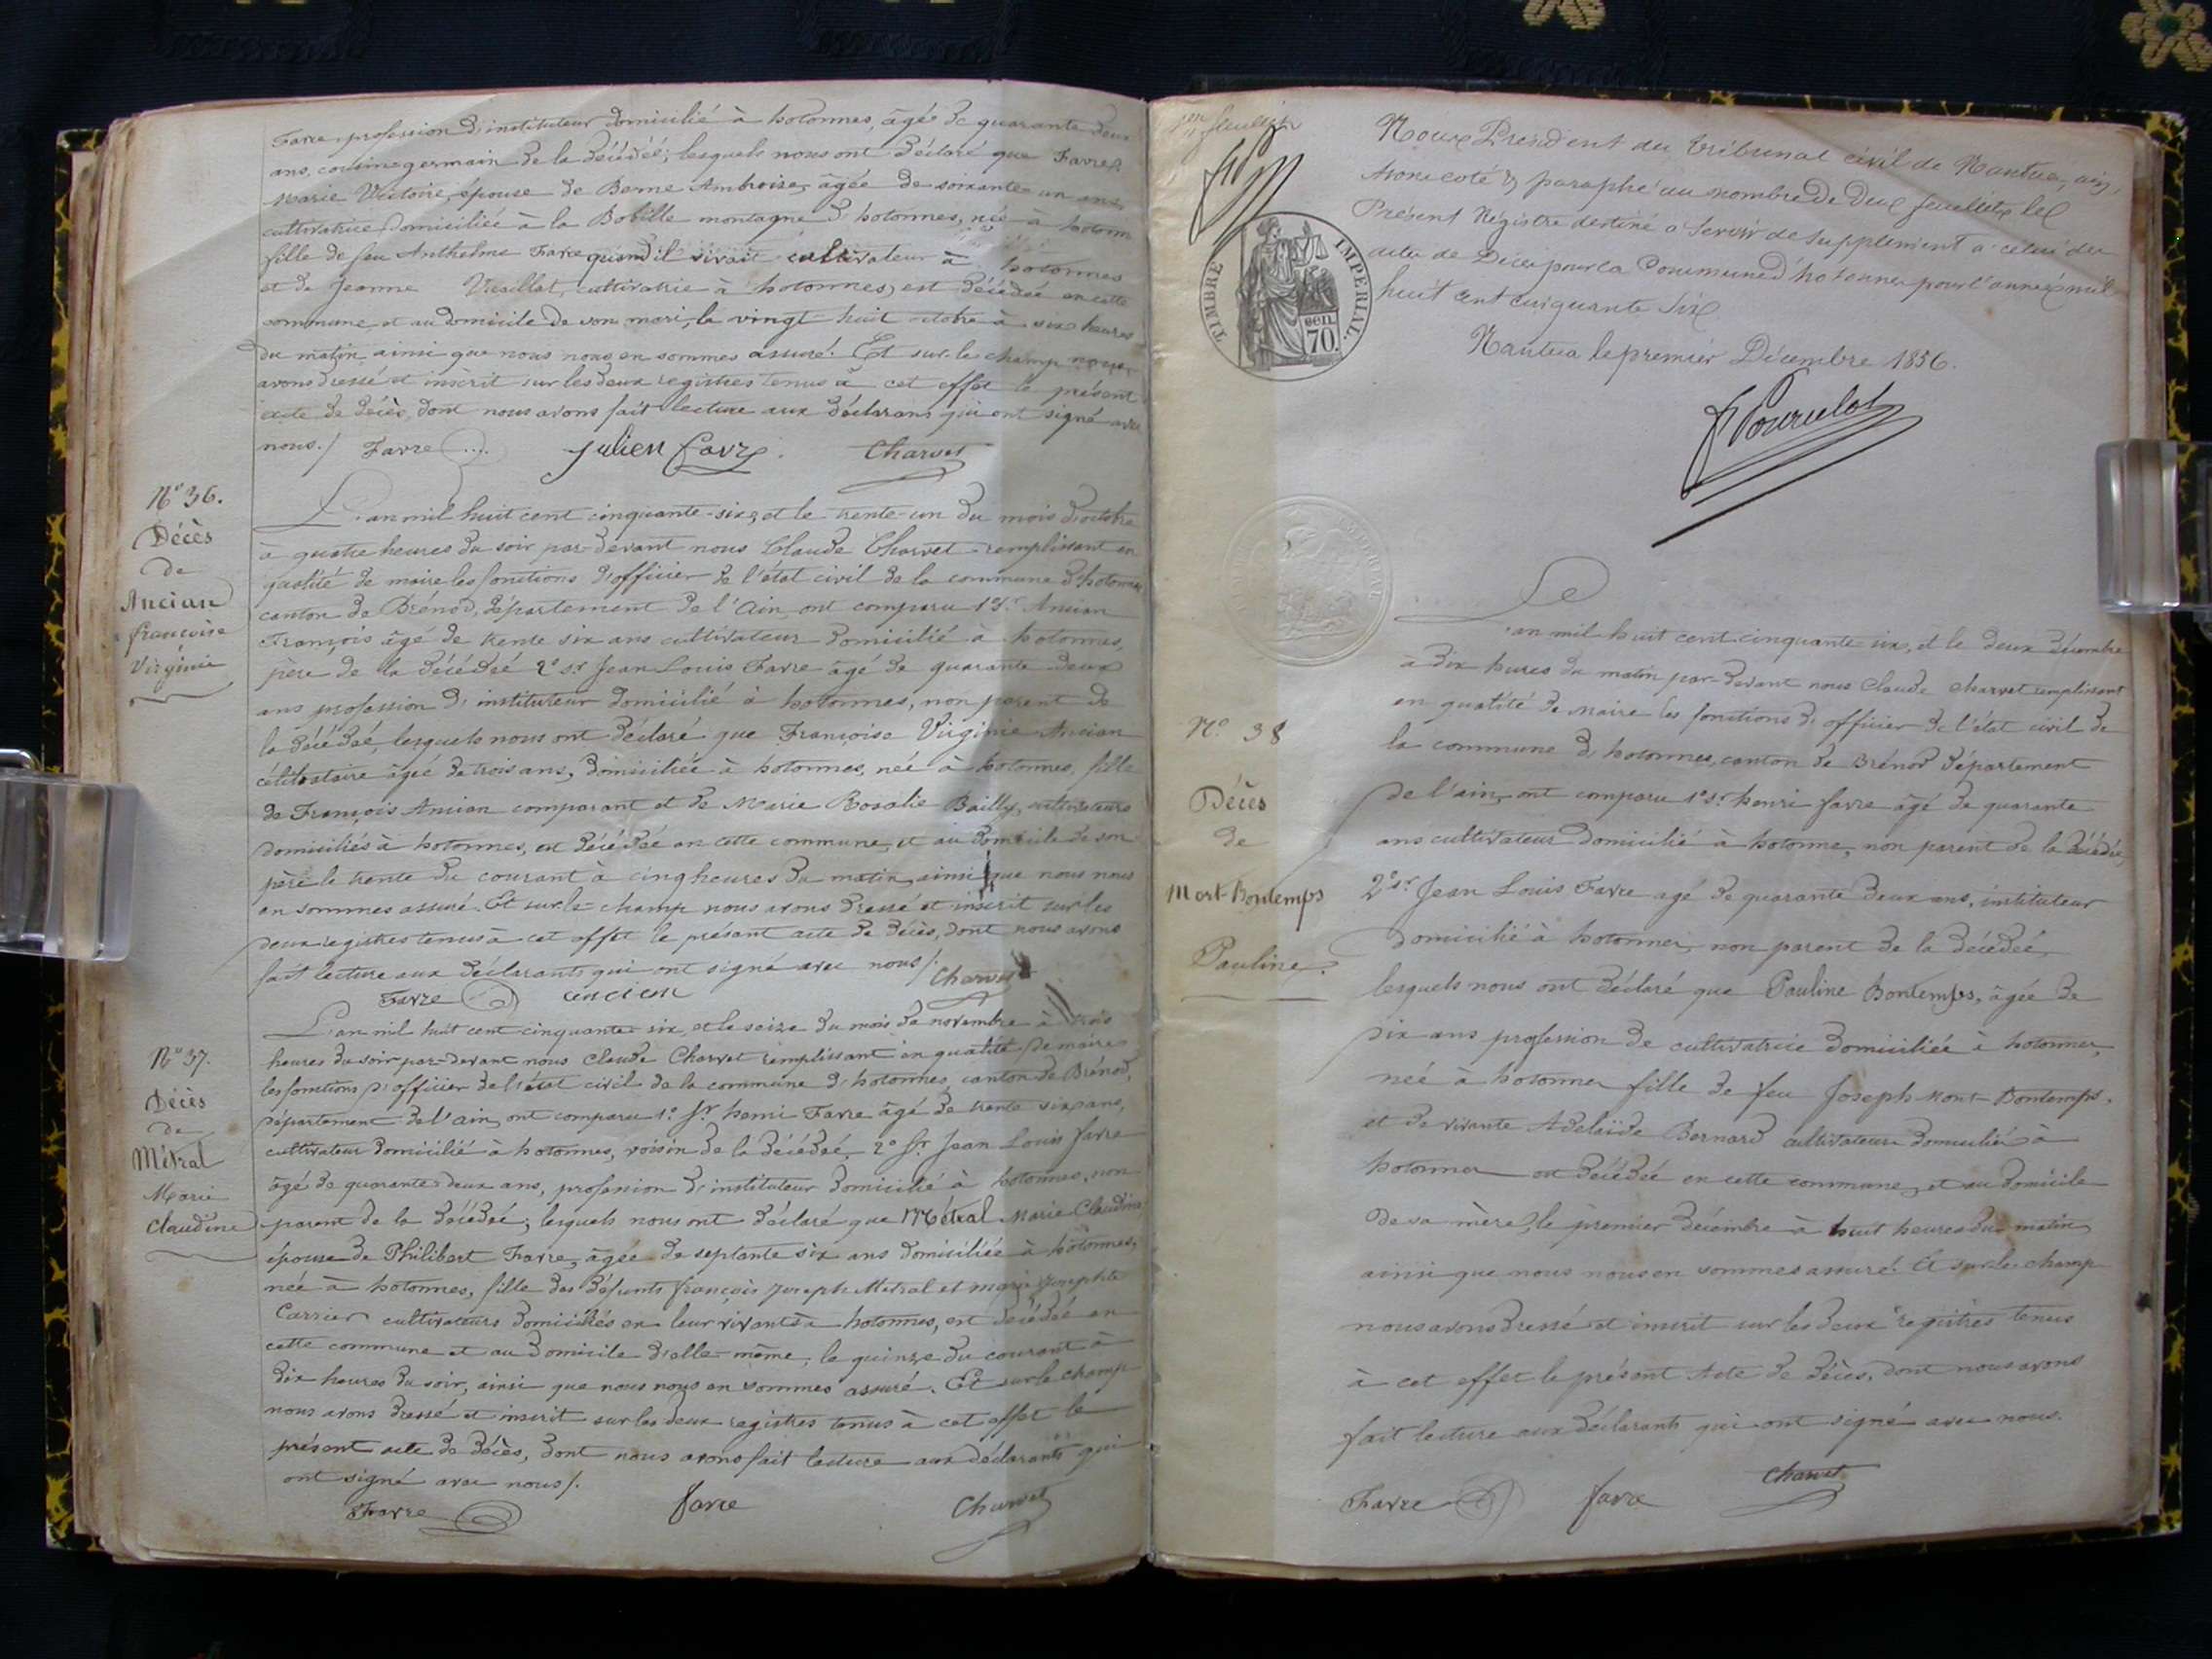 Favre, profession d'instituteur domicilié à hotonnes, âgé de quarante deux
ans, cousin germain de la décédée; lesquels nous ont déclaré que Favre
Marie Victoire, épouse de Berne Ambroise, âgée de soixante un ans
cultivatrice domiciliée à la Bobille montagne d'hotonnes, née à hotonn
fille de feu Anthelme Favre quand il vivait cultivateur à hotonnes
et de Jeanne Vuaillat, cultivatrice à hotonnes, est décédée en cette
commune et au domicile de son mari, le vingt-huit octobre à six heures
du matin, ainsi que nous nous en sommes assuré. Et sur-le-champ nous
avons dressé et inscrit sur les deux registres tenus à cet effet le présent
acte de décès, dont nous avons fait lecture aux déclarans qui ont signé avec
nous./ Favre Julien Favre Charvet
N° 36.
Décès
de
Ancian
francoise
Virginie
L'an mil huit cent cinquante-six, et le trente-un du mois d'octobre
à quatre heures du soir par-devant nous Claude Charvet remplissant en
qualité de maire les fonctions d'officier de l'état civil de la commune d'hotonnes
canton de Brénod, département de l'Ain, ont comparu 1° Sr Ancian
François âgé de trente six ans cultivateur domicilié à hotonnes,
père de la décédée 2° Sr Jean Louis Favre âgé de quarante deux
ans profession d'instituteur domicilié à hotonnes, non parent de
la décédée, lesquels nous ont déclaré que Françoise Virginie Ancian
célibataire âgée de trois ans, domiciliée à hotonnes, née à hotonnes, fille
de François Ancian comparant et de Marie Rosalie Bailly, cultivateurs
domiciliés à hotonnes, est décédée en cette commune, et au domicile de son
père le trente du courant à cinq heures du matin, ainsi que nous nous
en sommes assuré. Et sur-le-champ nous avons dressé et inscrit sur les
deux registres tenus à cet effet le présant acte de décès, dont nous avons
fait lecture aux déclarants qui ont signé avec nous /.
Favre ancien Charvet
N° 37.
Décès
de
Métral
Marie
Claudine
L'an mil huit cent cinquante-six, et le seize du mois de novembre à trois
heures du soir par-devant nous Claude Charvet remplissant en qualité de maire
les fonctions d'officier de l'état civil de la commune d'hotonnes, canton de Brénod,
département de l'ain, ont comparu 1° Sr henri Favre âgé de trente six ans,
cultivateur domicilié à hotonnes, voisin de la décédée, 2° Sr Jean Louis Favre
âgé de quarante deux ans, profession d'instituteur domicilié à hotonnes, non
parent de la décédée; lesquels nous ont déclaré que Métral Marie Claudine
épouse de Philibert Favre, âgée de septante six ans domiciliée à hotonnes,
née à hotonnes, fille des défunts françois Joseph Métral et marie Josephte
Carrier cultivateurs domiciliés en leur vivants à hotonnes, est décédée en
cette commune et au domicile d'elle-même, le quinze du courant à
dix heures du soir, ainsi que nous nous en sommes assuré. Et sur le champ
nous avons dressé et inscrit sur les deux registres tenus à cet effet le
présent acte de décès, dont nous avons fait lecture aux déclarants qui
ont signé avec nous /.
Favre favre Charvet
feuillet
TIMBRE IMPERIAL.
70
cen.
Nous President du tribunal civil de Nantua, ain,
Avons coté & paraphé au nombre de deux feuillets le
Present Régistre destiné a servir de supplement a celui des
actes de Décès pour la Commune d'hotonnes pour l'année mil
huit cent cinquante Six
Nantua le premier Décembre 1856.
N° 38
Décès
de
Mort-Bontemps
Pauline.
L'an mil huit cent cinquante six, et le deux décembre
à dix hures du matin par-devant nous Claude Charvet remplissant
en qualité de Maire les fonctions d'officier de l'état civil de
la commune d'hotonnes, canton de Brénod département
de l'ain, ont comparu 1° Sr henri favre âgé de quarante
ans cultivateur domicilié à hotonne, non parent de la décédée,
2° Sr Jean Louis Favre agé de quarante deux ans, instituteur
domicilié à hotonnes, non parent de la décédée,
lesquels nous ont déclaré que Pauline Bontemps, âgée de
dix ans profession de cultivatrice domiciliée à hotonnes,
née à hotonnes fille de feu Joseph Mort-Bontemps,
et de vivante Adelaïde Bernard cultivateurs domiciliés à
hotonnes est décédée en cette commune, et au domicile
de sa mère, le premier décembre à huit heures du matin,
ainsi que nous nous en sommes assuré. Et sur-le-champ
nous avons dressé et inscrit sur les deux registres tenus
à cet effet le présent Acte de décès, dont nous avons
fait lecture aux déclarants qui ont signé avec nous.
Favre favre Charvet